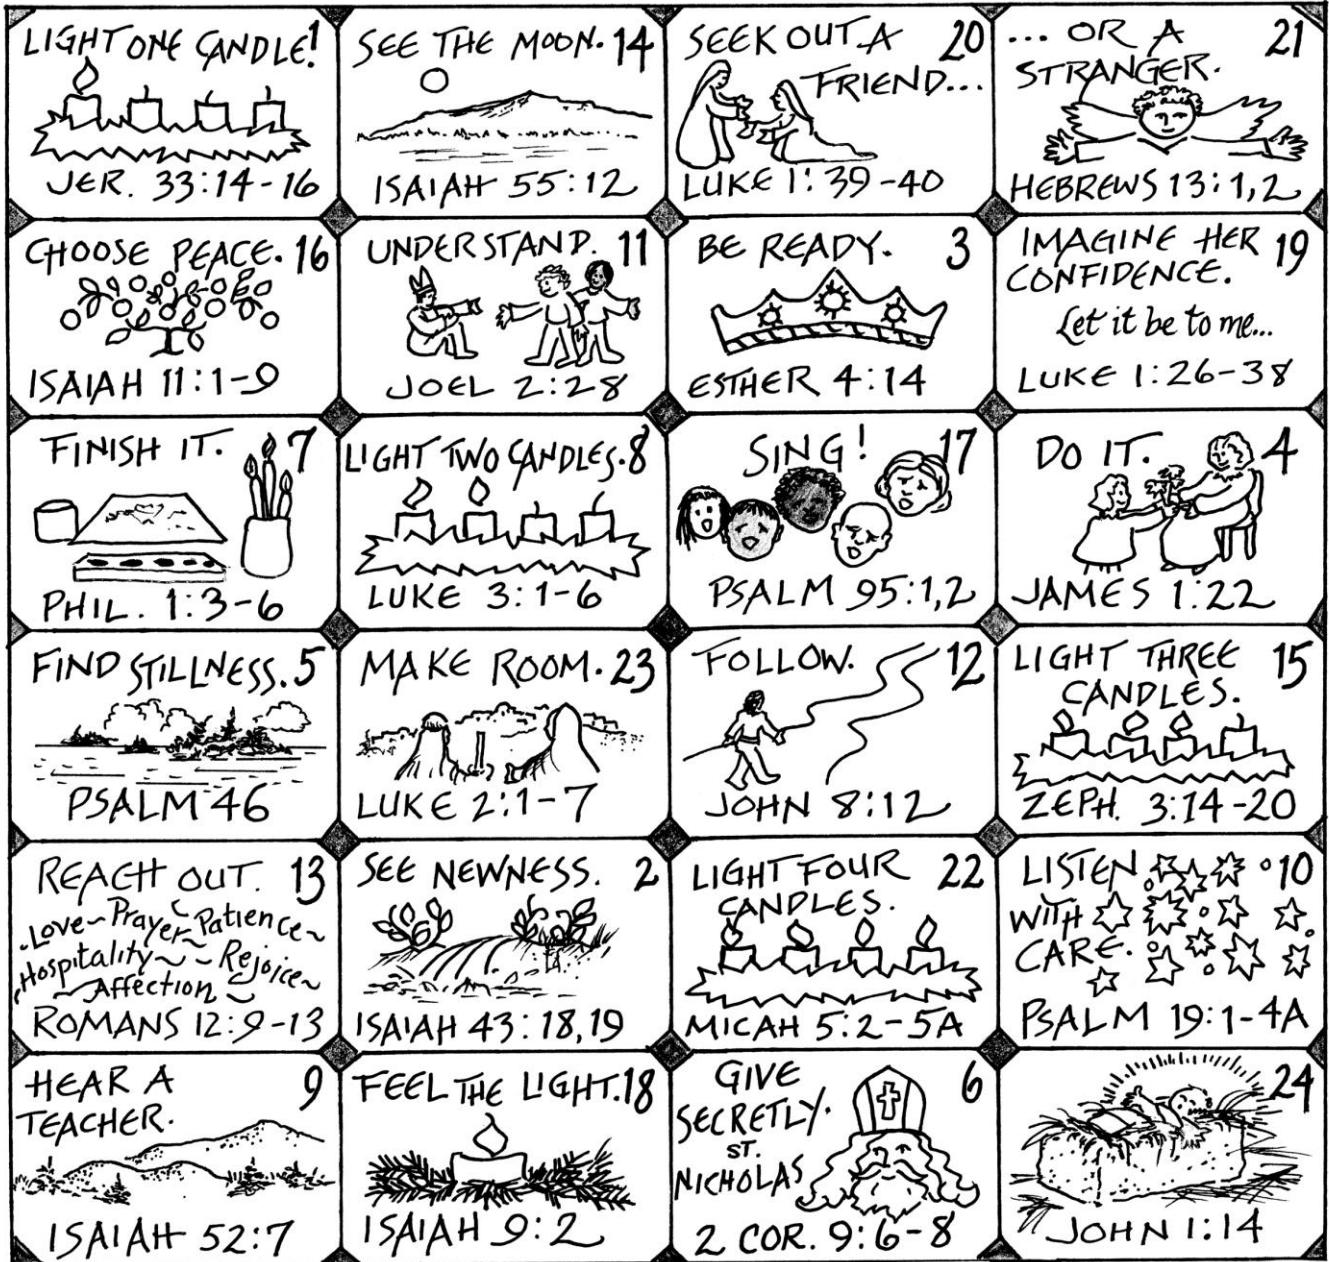 LIGHT ONE CANDLE! 1
JER. 33:14-16
SEE THE MOON. 14
ISAIAH 55:12
SEEK OUT A 20
FRIEND...
LUKE 1:39-40
... OR A 21
STRANGER.
HEBREWS 13:1,2
CHOOSE PEACE. 16
ISAIAH 11:1-9
UNDERSTAND. 11
JOEL 2:28
BE READY. 3
ESTHER 4:14
IMAGINE HER 19
CONFIDENCE.
Let it be to me...
LUKE 1:26-38
FINISH IT. 7
PHIL. 1:3-6
LIGHT TWO CANDLES. 8
LUKE 3:1-6
SING! 17
PSALM 95:1,2
DO IT. 4
JAMES 1:22
FIND STILLNESS. 5
PSALM 46
MAKE ROOM. 23
LUKE 2:1-7
FOLLOW. 12
JOHN 8:12
LIGHT THREE 15
CANDLES.
ZEPH. 3:14-20
REACH OUT. 13
Love~Prayer~Patience~
Hospitality~~Rejoice~
~Affection~
ROMANS 12:9-13
SEE NEWNESS. 2
ISAIAH 43:18,19
LIGHT FOUR 22
CANDLES.
MICAH 5:2-5A
LISTEN 10
WITH
CARE.
PSALM 19:1-4A
HEAR A 9
TEACHER.
ISAIAH 52:7
FEEL THE LIGHT. 18
ISAIAH 9:2
GIVE 6
SECRETLY.
ST.
NICHOLAS
2 COR. 9:6-8
24
JOHN 1:14